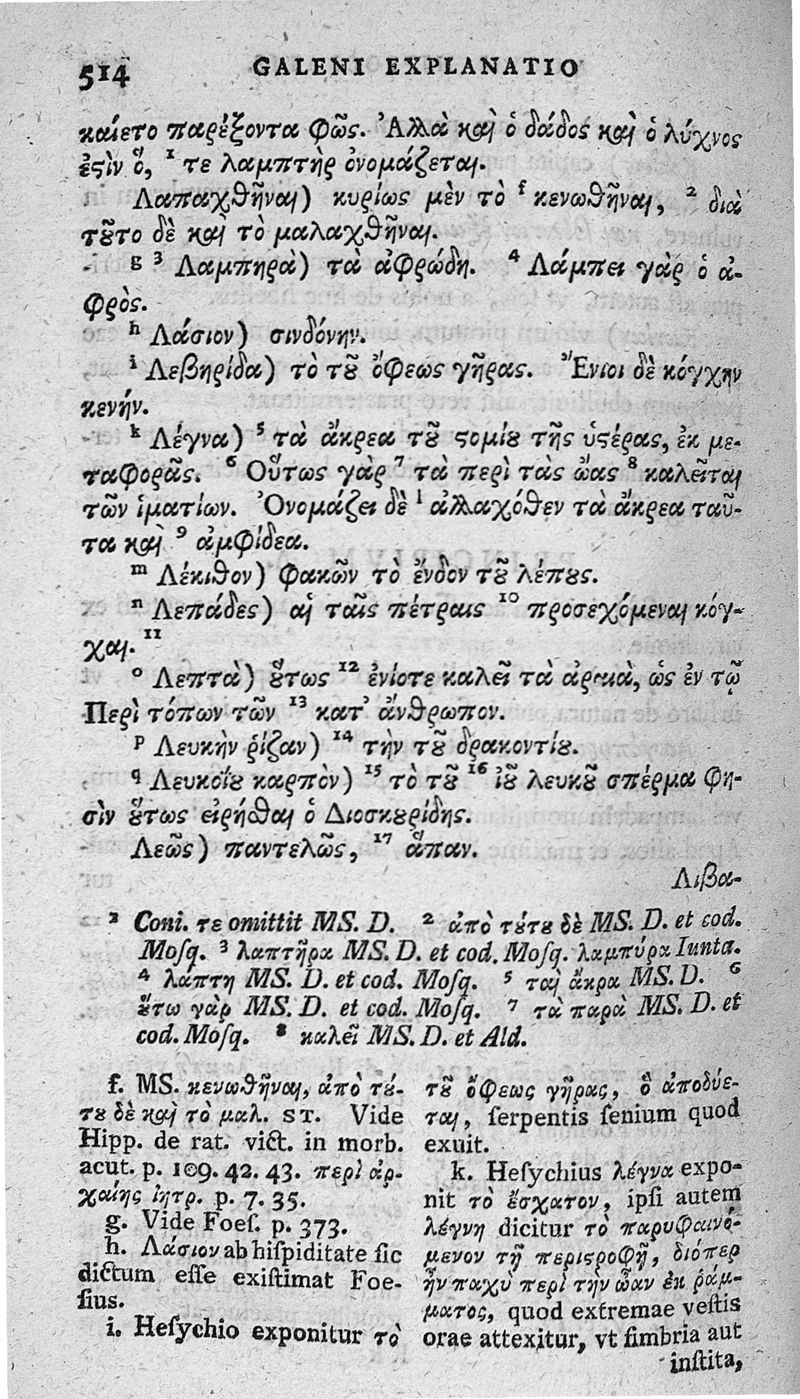 514
GALENI EXPLANATIO
καίετο παρέξοντα φῶς. Ἀλλὰ καὶ ὁ δάδος καὶ ὁ λύχνος
ἐϛὶν ὅ, ¹ τε λαμπτὴρ ὀνομάζεται.
Λαπαχθῆναι) κυρίως μὲν τὸ ᶠ κενωθῆναι, ² διὰ
τȣ͂το δὲ καὶ τὸ μαλαχθῆναι.
g ³ Λαμπηρὰ) τὰ ἀφρώδη. ⁴ Λάμπει γὰρ ὁ ἀ-
φρὸς.
ʰ Λάσιον) σινδόνην.
ⁱ Λεβηρίδα) τὸ τȣ͂ ὄφεως γῆρας. Ἔνιοι δὲ κόγχην
κενήν.
ᵏ Λέγνα) ⁵ τὰ ἄκρεα τȣ͂ ϛομίȣ τῆς ὑϛέρας, ἐκ με-
ταφορᾶς. ⁶ Οὕτως γὰρ ⁷ τὰ περὶ τὰς ὤας ⁸ καλεῖται
τῶν ἱματίων. Ὀνομάζει δὲ ˡ ἀλλαχόθεν τὰ ἄκρεα ταῦ-
τα καὶ ⁹ ἀμφίδεα.
ᵐ Λέκιθον) φακῶν τὸ ἔνδον τȣ͂ λέπȣς.
ⁿ Λεπάδες) αἱ ταῖς πέτραις ¹⁰ προσεχόμεναι κόγ-
χαι. ¹¹
ᵒ Λεπτὰ) ȣ̔́τως ¹² ἐνίοτε καλεῖ τὰ ἀραιὰ, ὡς ἐν τῷ
Περὶ τόπων τῶν ¹³ κατ' ἄνθρωπον.
ᵖ Λευκὴν ῥίζαν) ¹⁴ τὴν τȣ͂ δρακοντίȣ.
q Λευκοΐȣ καρπὸν) ¹⁵ τὸ τȣ͂ ¹⁶ ἴȣ λευκȣ͂ σπέρμα φη-
σὶν ȣ̔́τως εἰρῆσθαι ὁ Διοσκȣρίδης.
Λεῶς) παντελῶς, ¹⁷ ἅπαν.
Λιβα-
¹ Coni. τε omittit MS. D. ² ἀπὸ τȣ́τȣ δὲ MS. D. et cod.
Moſq. ³ λαπτῆρα MS. D. et cod. Moſq. λαμπύρα Iunta.
⁴ λάπτη MS. D. et cod. Moſq. ⁵ ται ἄκρα MS. D. ⁶
ȣ̔́τω γὰρ MS. D. et cod. Moſq. ⁷ τὰ παρὰ MS. D. et
cod. Moſq. ⁸ καλεῖ MS. D. et Ald.
f. MS. κενωθῆναι, ἀπὸ τȣ́-
τȣ δὲ καὶ τὸ μαλ. ST. Vide
Hipp. de rat. vict. in morb.
acut. p. 109. 42. 43. περὶ ἀρ-
χαίης ἰητρ. p. 7. 35.
g. Vide Foeſ. p. 373.
h. Λάσιον ab hiſpiditate ſic
dictum eſſe exiſtimat Foe-
ſius.
i. Heſychio exponitur τὸ
τȣ͂ ὄφεως γῆρας, ὃ ἀποδύε-
ται, ſerpentis ſenium quod
exuit.
k. Heſychius λέγνα expo-
nit τὸ ἔσχατον, ipſi autem
λέγνη dicitur τὸ παρυφαινό-
μενον τῇ περιϛροφῇ, διόπερ
ἦν παχὺ περὶ τὴν ὤαν ἐκ ῥάμ-
ματος, quod extremae veſtis
orae attexitur, vt fimbria aut
inſtita,